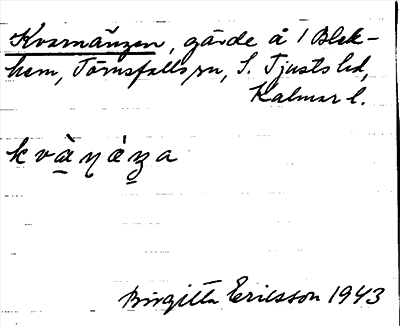 Kvarnängen, gärde å 1 Blek-
hem, Törnsfalls sn, S. Tjusts hd,
Kalmar l.
kvàṇàṇa
Birgitta Ericsson 1943